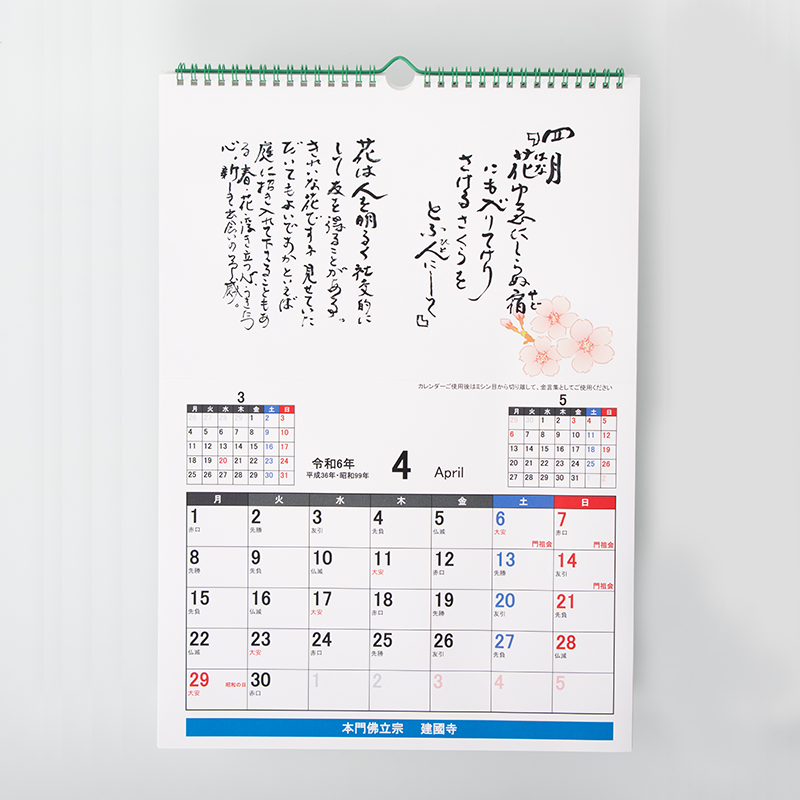 四月
花ゆゑにしらぬ宿
はな
やど
にも入りてけり
さけるさくらを
とふ人にして
ひと
花は人を明るく社交的に
して友を得ることがある。
きれいな花ですネ見せていた
だいてもよいですかといえば
庭に招き入れて下さることもあ
る春・花・浮き立つ心うきたつ
心。新しき出会いの予感。
カレンダーご使用後はミシン目から切り離して、金言集としてご使用ください
3
月 火 水 木 金 土 日
1 2 3
4 5 6 7 8 9 10
11 12 13 14 15 16 17
18 19 20 21 22 23 24
25 26 27 28 29 30 31
令和6年
平成36年・昭和99年
4 April
5
月 火 水 木 金 土 日
29 30 1 2 3 4 5
6 7 8 9 10 11 12
13 14 15 16 17 18 19
20 21 22 23 24 25 26
27 28 29 30 31 1 2
月 火 水 木 金 土 日
1 2 3 4 5 6 7
赤口 先勝 友引 先負 仏滅 大安 門祖会 赤口 門祖会
8 9 10 11 12 13 14
先勝 先負 仏滅 大安 赤口 先勝 友引 門祖会
15 16 17 18 19 20 21
先負 仏滅 大安 赤口 先勝 友引 先負
22 23 24 25 26 27 28
仏滅 大安 赤口 先勝 友引 先負 仏滅
29 30 1 2 3 4 5
大安 昭和の日 赤口
本門佛立宗 建國寺